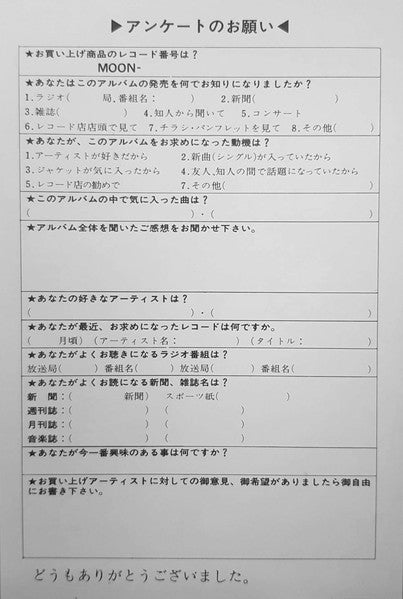 ▶アンケートのお願い◀
★お買い上げ商品のレコード番号は？
MOON-
★あなたはこのアルバムの発売を何でお知りになりましたか？
1.ラジオ(　　　局、番組名：　　　) 2.新聞(　　　　　　)
3.雑誌(　　　　　) 4.知人から聞いて 5.コンサート
6.レコード店店頭で見て 7.チラシ・パンフレットを見て 8.その他(　　　)
★あなたが、このアルバムをお求めになった動機は？
1.アーティストが好きだから　2.新曲(シングル)が入っていたから
3.ジャケットが気に入ったから　4.友人、知人の間で話題になっていたから
5.レコード店の勧めで　7.その他(　　　　　　　　　)
★このアルバムの中で気に入った曲は？
(　　　　　　　　　　　　)・(　　　　　　　　　　　　)
★アルバム全体を聞いたご感想をお聞かせ下さい。
★あなたの好きなアーティストは？
(　　　　　　　　　　　　)・(　　　　　　　　　　　　)
★あなたが最近、お求めになったレコードは何ですか。
(　　月頃) (アーティスト名：　　　　　) (タイトル：　　　　　)
★あなたがよくお聴きになるラジオ番組は？
放送局(　　　) 番組名(　　　) 放送局(　　　) 番組名(　　　　　)
★あなたがよくお読になる新聞、雑誌名は？
新　聞：(　　　　　新聞) スポーツ紙(　　　　　　)
週刊誌：(　　　　　　) (　　　　　　)
月刊誌：(　　　　　　) (　　　　　　)
音楽誌：(　　　　　　) (　　　　　　)
★あなたが今一番興味のある事は何ですか？
★お買い上げアーティストに対しての御意見、御希望がありましたら御自由
にお書き下さい。
どうもありがとうございました。